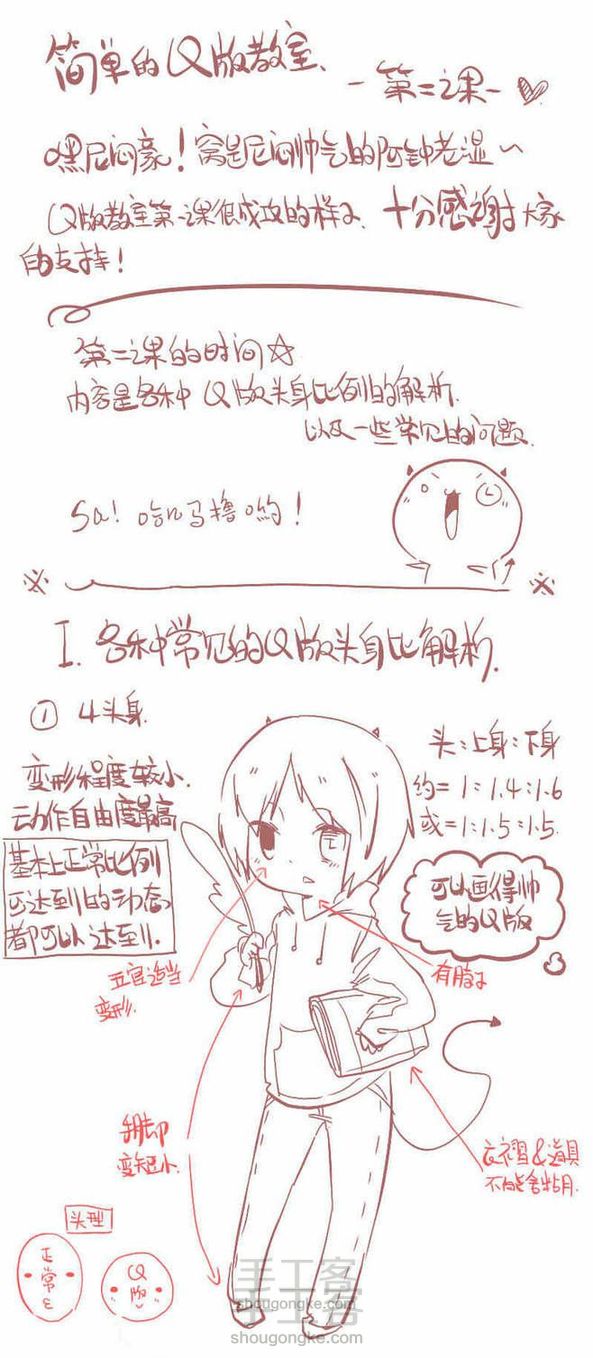 简单的Q版教室、
-第二课-
嘿尼闷豪！窝是尼闷帅气的阿钟老湿~
Q版教室第一课很成攻的样子、十分感谢大家
的支持！
第二课的时间☆
内容是各种Q版头身比例的解析.
以及一些常见的问题.
Sa! 哈几马撸哟！
※ ※
I. 各种常见的Q版头身比解析.
① 4头身.
变形程度较小.
动作自由度最高
基本上正常比例
可达到的动态
都可以达到.
头:上身:下身
约=1:1.4:1.6
或=1:1.5:1.5.
可以画得帅
气的Q版
五官适当
变形.
有脖子
手脚
变短小.
衣褶&道具
不能舍弃
头型
正常
Q版
手工客
shougongke.com
手工客
shougongke.com